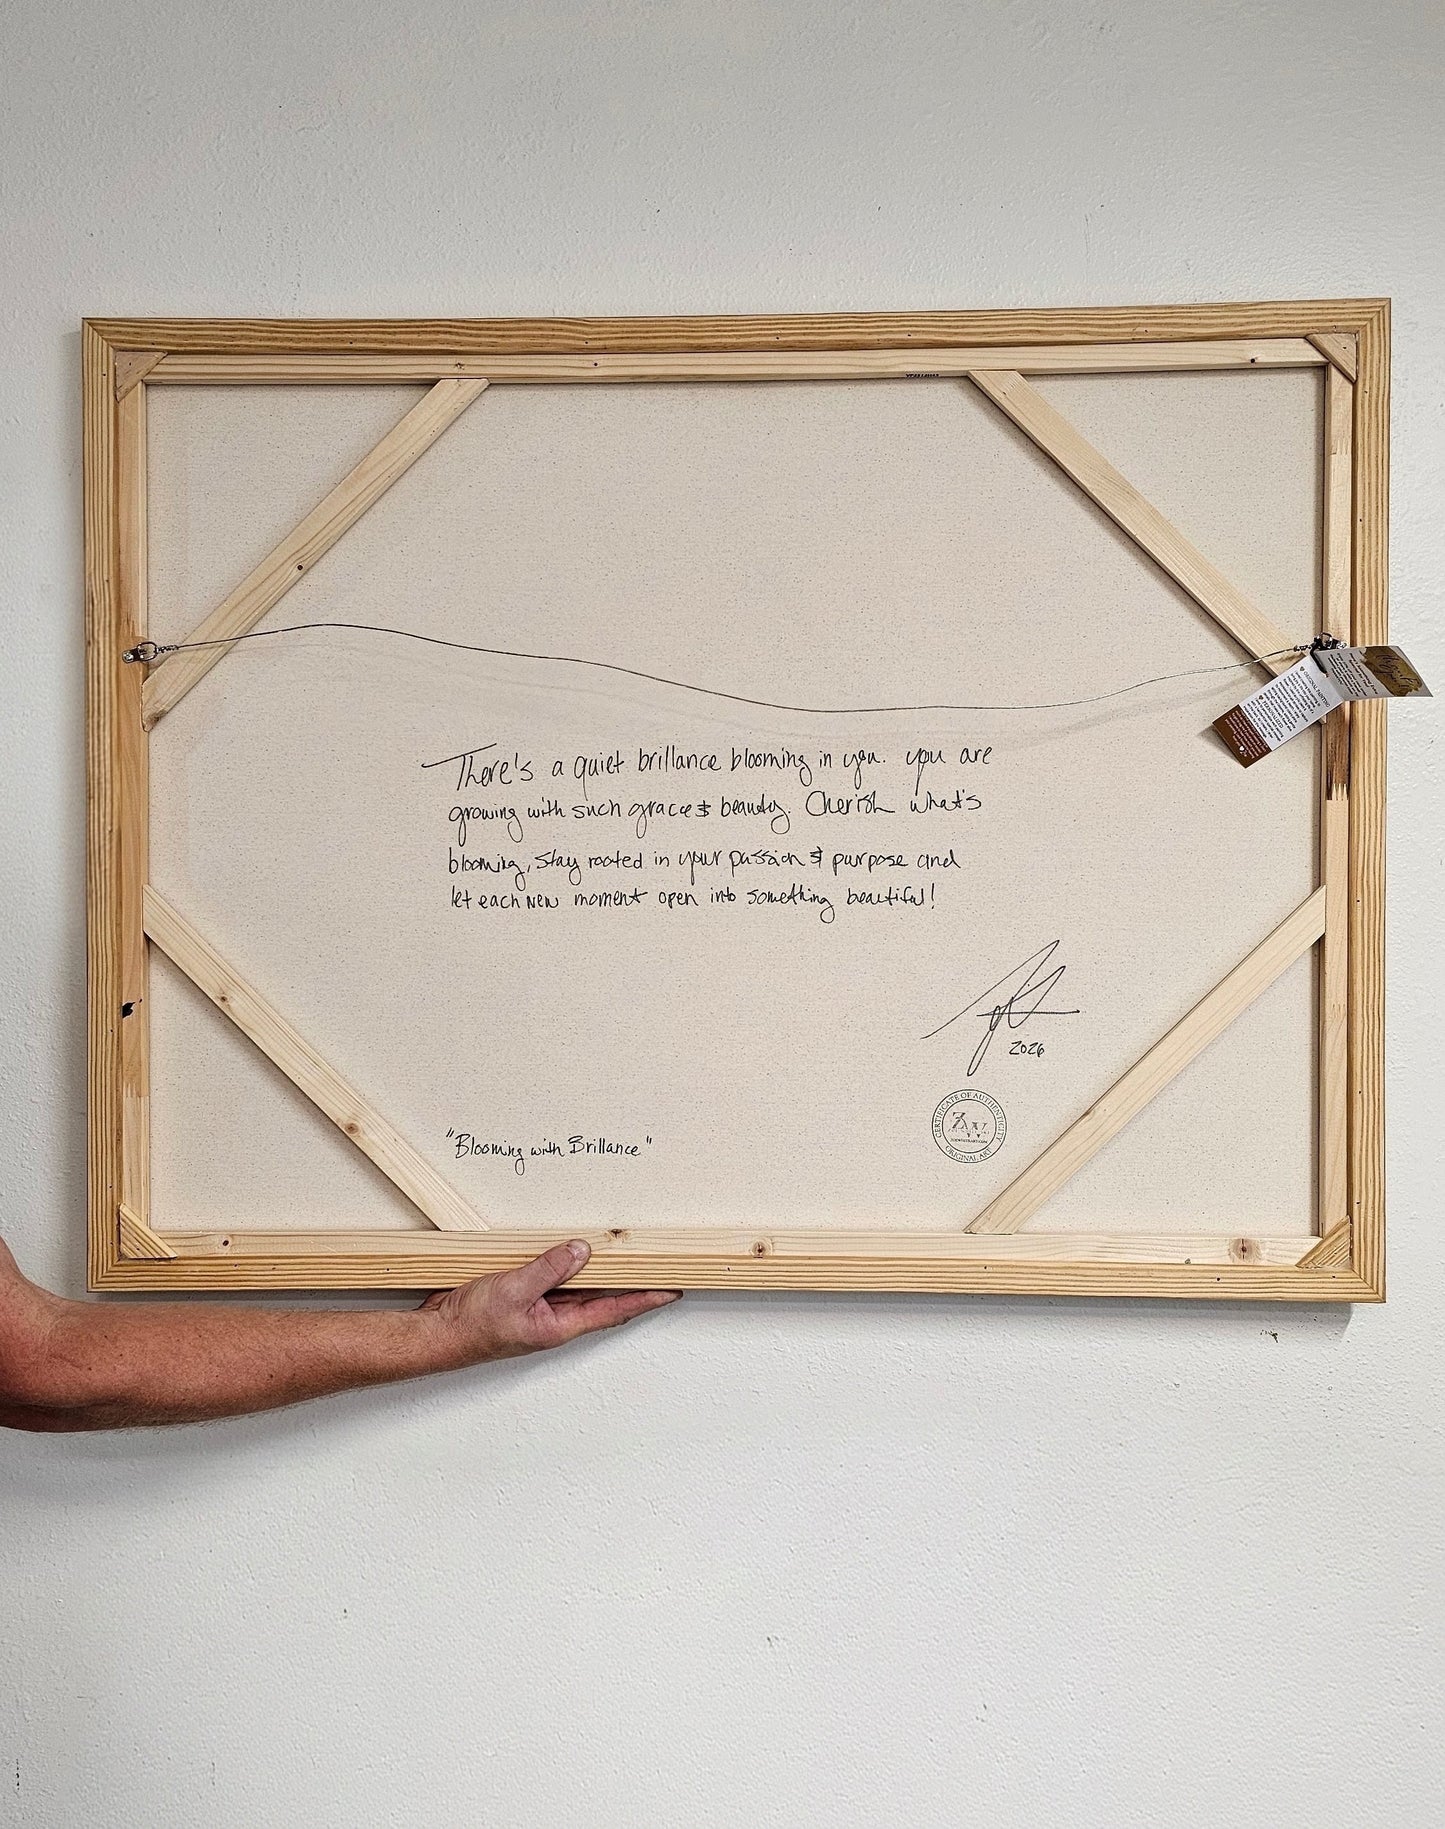 There's a quiet brillance blooming in you. you are
growing with such grace & beauty. Cherish what's
blooming, stay rooted in your passion & purpose and
let each new moment open into something beautiful!
2026
"Blooming with Brillance"
CERTIFICATE OF AUTHENTICITY
ZW
ORIGINAL ART
ORIGINAL PAINTING